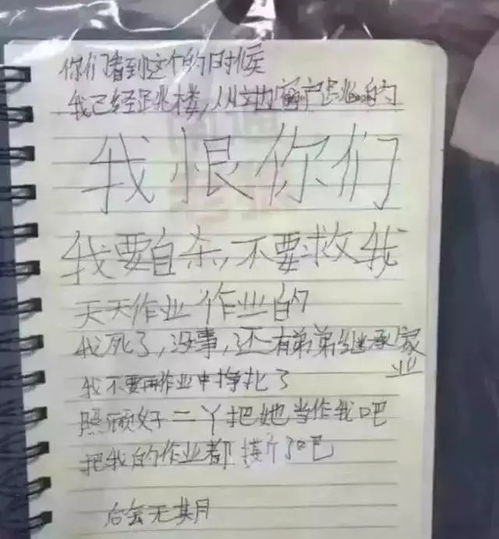 你们看到这个的时候
我已经跳楼,从窗户跳的
我恨你们
我要自杀,不要救我
天天作业作业的
我死了,没事,还有弟弟继承家
业
我不要再作业中挣扎了
照顾好二丫把她当作我吧
把我的作业都撕了吧
后会无期